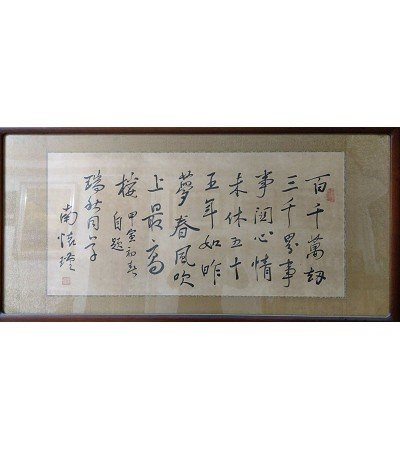 百千萬劫
三千界事
事關心情
未休五十
五年如昨
夢春風吹
上最高
樓
甲寅初春
自題
瑞秋同學
南懷瑾